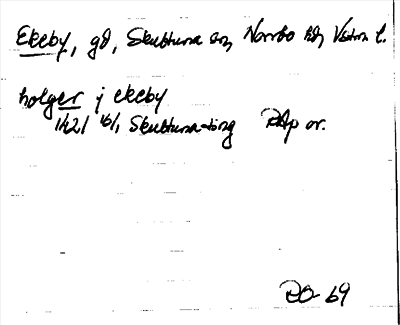 Ekeby, gd, Skultuna sn, Norrbo hd, Vstm l.
holger j ekeby
1421 16/1, Skultuna ting RAp or.
RO 69